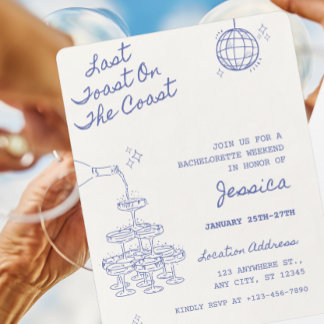 Last
Toast On
The Coast
JOIN US FOR A
BACHELORETTE WEEKEND
IN HONOR OF
Jessica
JANUARY 25TH-27TH
Location Address
123 ANYWHERE ST.,
ANY CITY, ST 12345
KINDLY RSVP AT +123-456-7890